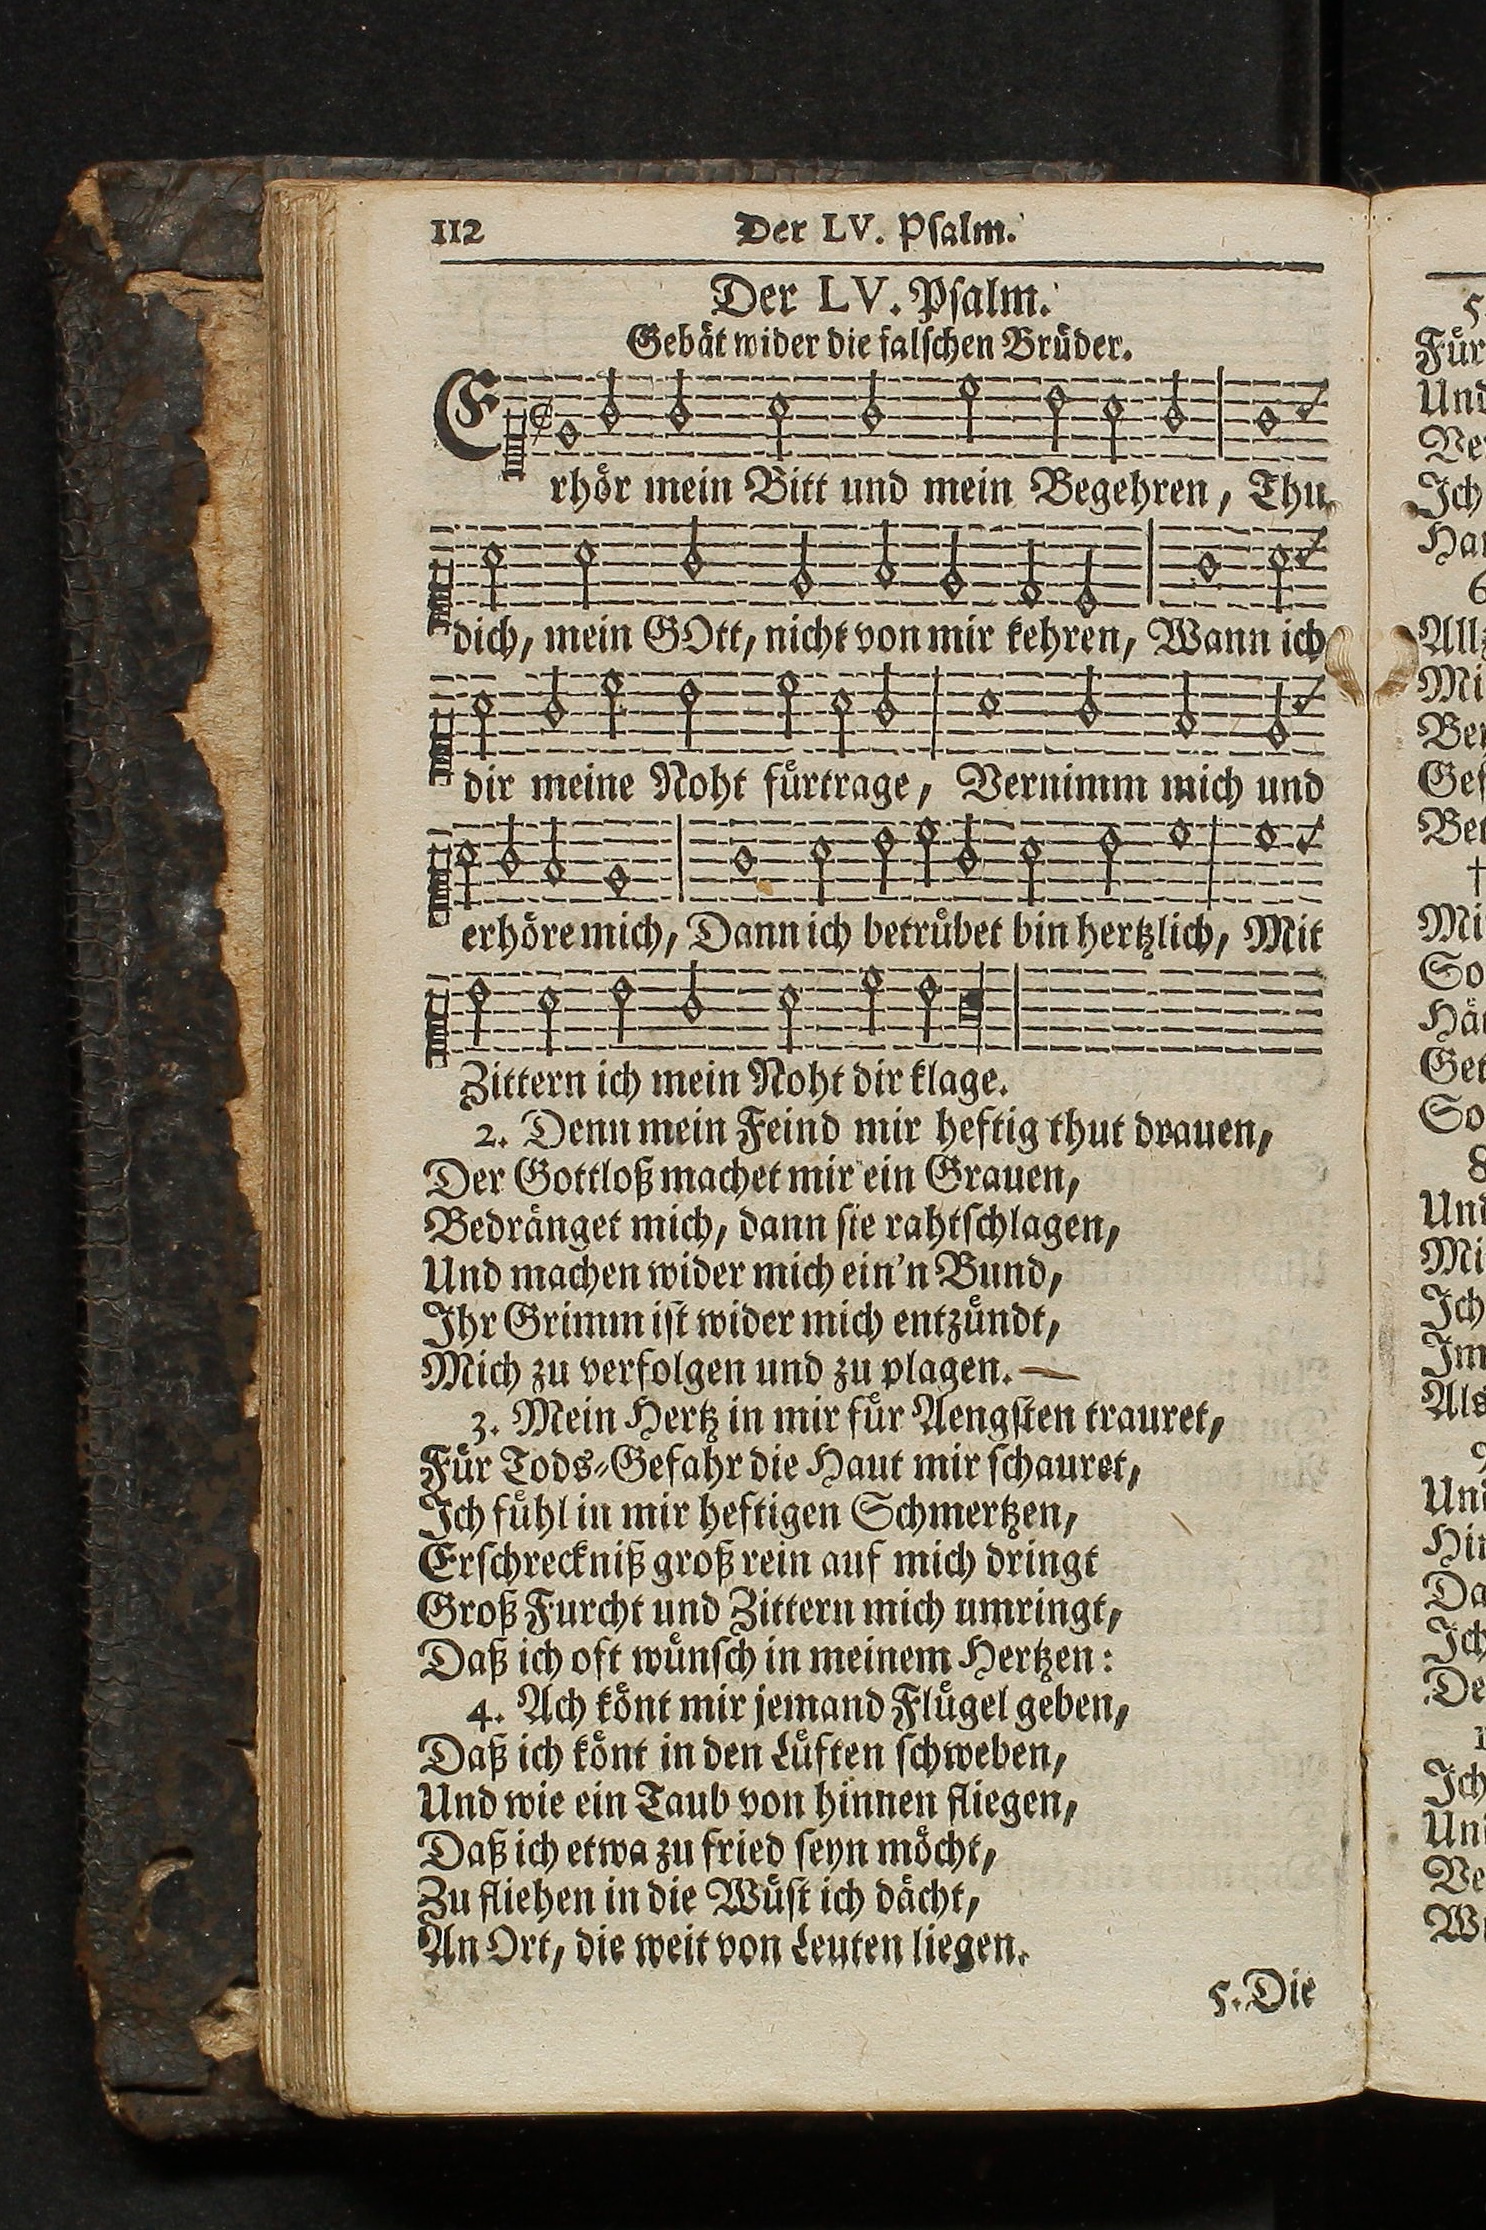 112 Der LV. Psalm.
Der LV. Psalm.
Gebät wider die falschen Brüder.
Erhör mein Bitt und mein Begehren, Thu
dich, mein GOtt, nicht von mir kehren, Wann ich
dir meine Noht fürtrage, Vernimm mich und
erhöre mich, Dann ich betrübet bin hertzlich, Mit
Zittern ich mein Noht dir klage.
2. Denn mein Feind mir heftig thut drauen,
Der Gottloß machet mir ein Grauen,
Bedränget mich, dann sie rahtschlagen,
Und machen wider mich ein'n Bund,
Ihr Grimm ist wider mich entzündt,
Mich zu verfolgen und zu plagen.
3. Mein Hertz in mir für Aengsten trauret,
Für Tods-Gefahr die Haut mir schauret,
Ich fühl in mir heftigen Schmertzen,
Erschreckniß groß rein auf mich dringt
Groß Furcht und Zittern mich umringt,
Daß ich oft wünsch in meinem Hertzen:
4. Ach könt mir jemand Flügel geben,
Daß ich könt in den Lüften schweben,
Und wie ein Taub von hinnen fliegen,
Daß ich etwa zu fried seyn möcht,
Zu fliehen in die Wüst ich dächt,
An Ort, die weit von Leuten liegen.
5. Die